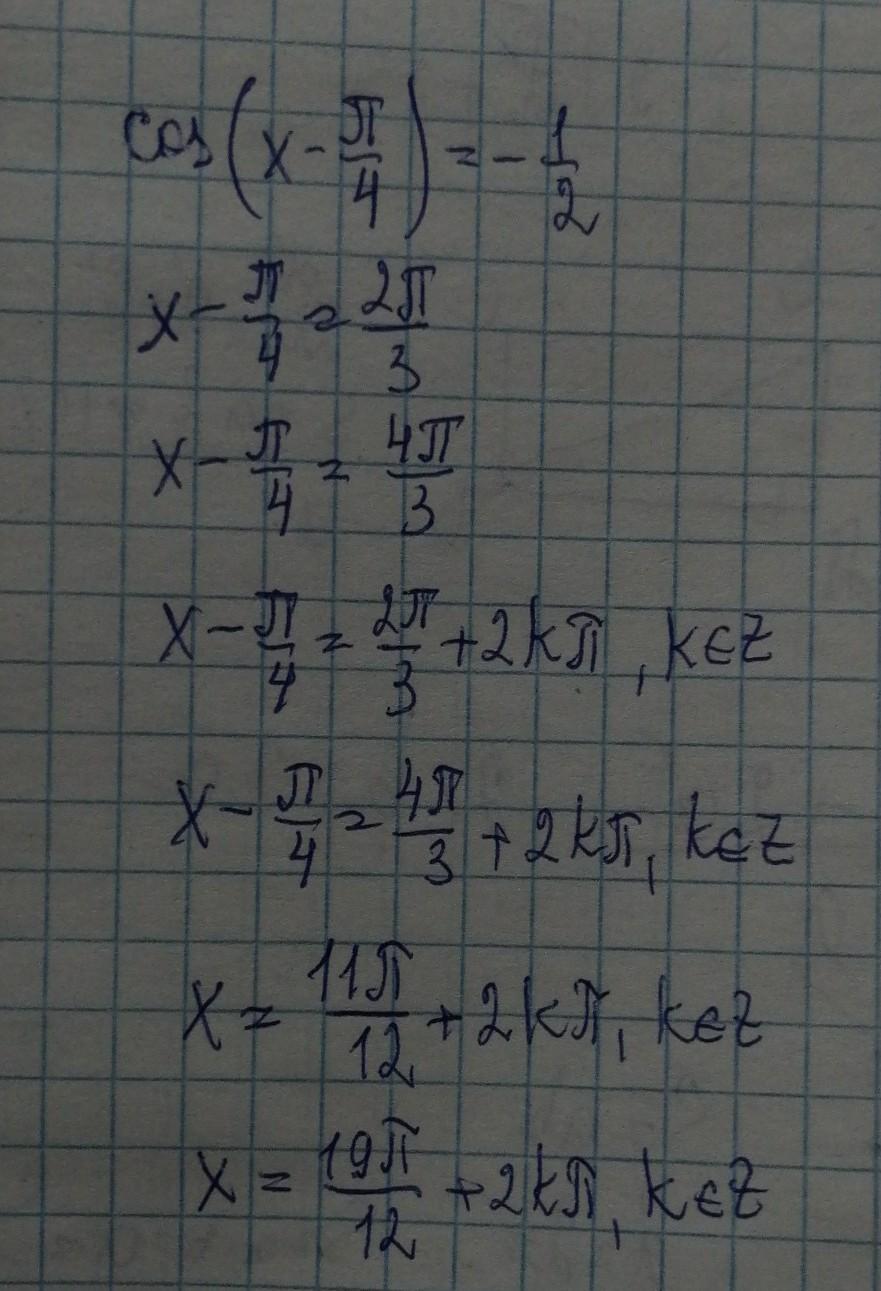 cos(x - π/4) = - 1/2
x - π/4 = 2π/3
x - π/4 = 4π/3
x - π/4 = 2π/3 + 2kπ, k∈Z
x - π/4 = 4π/3 + 2kπ, k∈Z
x = 11π/12 + 2kπ, k∈Z
x = 19π/12 + 2kπ, k∈Z